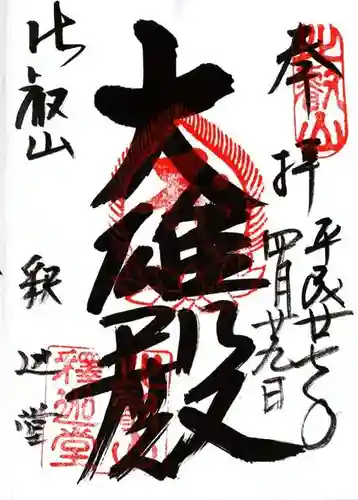 奉拝
平成廿七年
四月廿九日
比叡山
大雄殿
比叡山
釈迦堂
釋迦堂